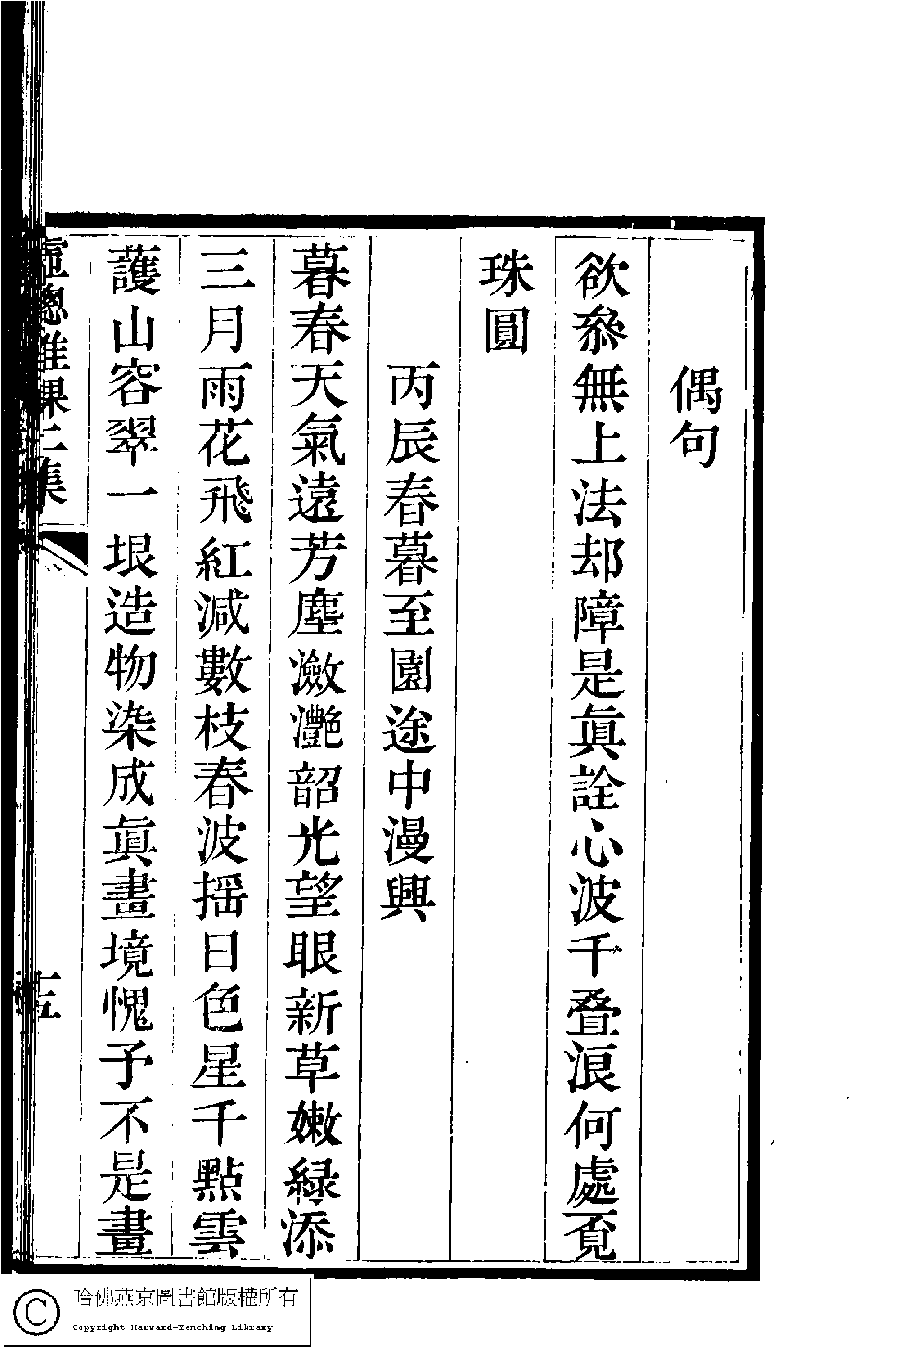 偶句
欲叅無上法却障是眞詮心波千叠浪何處覓
珠圓
丙辰春暮至園途中漫興
暮春天氣遠芳塵瀲灧韶光望眼新草嫩緑添
三月雨花飛紅減數枝春波揺日色星千點雲
䕶山容翠一垠造物染成眞畫境愧予不是畫
窻雜課二集
十五
哈佛燕京圖書館版權所有
Copyright Harvard-Yenching Library